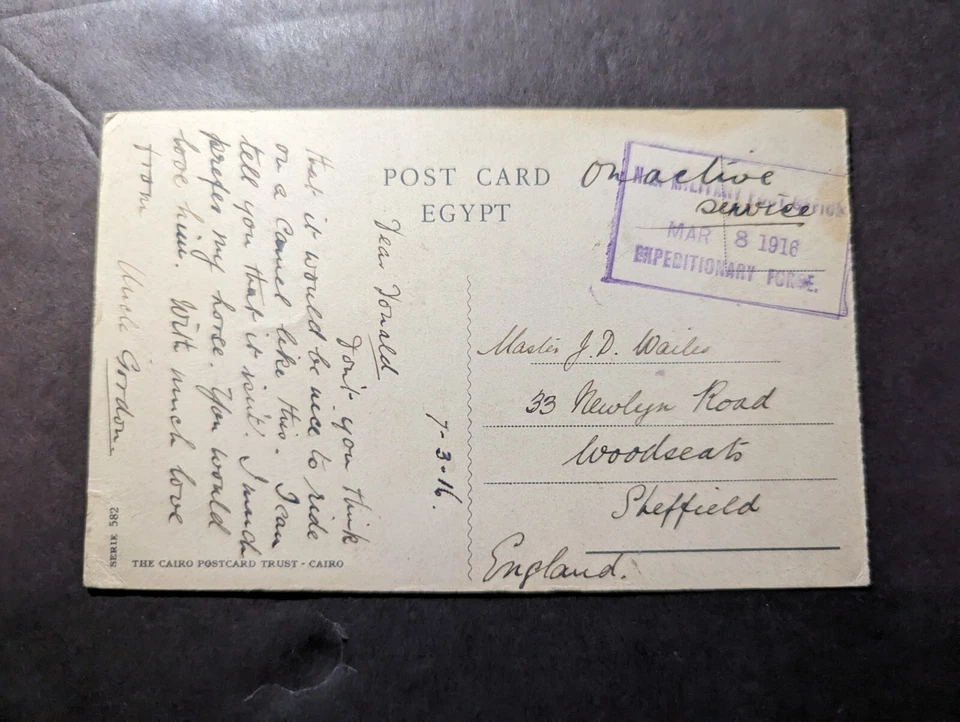 POST CARD
EGYPT
On active
service
N.Z. MILITARY POST OFFICE
MAR 8 1916
EXPEDITIONARY FORCE.
7-3-16.
Dear Donald
Don't you think
that it would be nice to ride
on a camel like this. I can
tell you that it isn't. I much
prefer my horse. You would
love him. With much love
from Uncle Gordon
Master J.D. Wailes
33 Newlyn Road
Woodseats
Sheffield
England.
SERIE 582
THE CAIRO POSTCARD TRUST - CAIRO